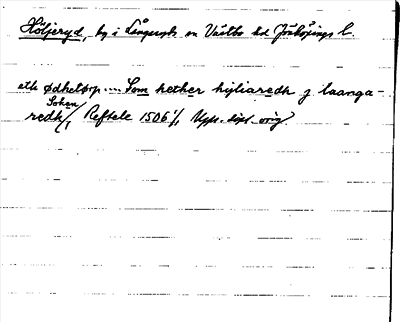 Höljeryd, by i Långaryds sn Västbo hd Jönköpings l.
eth ødhetorp .... Som hether hyliaredh j laanga-
Soken
redh/, Reftele 1506 1/1 Upps. dipl. orig.